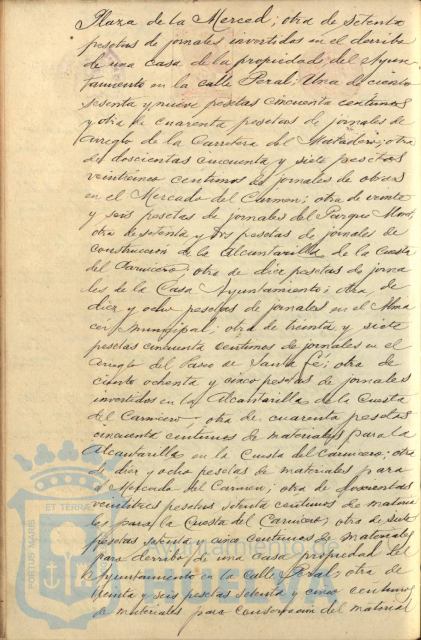 Plaza de la Merced; otra de setenta
pesetas de jornales invertidos en el derribo
de una casa de la propiedad del Ayun-
tamiento en la calle Peral: Una de ciento
sesenta y nueve pesetas cincuenta centimos
y otra de cuarenta pesetas de jornales de
arreglo de la Carretera del Matadero; otra
de doscientas cincuenta y siete pesetas
veinticinco centimos de jornales de obras
en el Mercado del Carmen; otra de veinte
y seis pesetas de jornales del Parque
otra de setenta y tres pesetas de jornales de
construcción de la Alcantarilla de la Cuesta
del Carnicero; otra de diez pesetas de jorna
les de la Casa Ayuntamiento; otra de
diez y ocho pesetas de jornales en el Alma
cén municipal; otra de treinta y siete
pesetas cincuenta centimos de jornales en el
arreglo del Paseo de Santa Fé; otra de
ciento ochenta y cinco pesetas de jornales
invertidos en la Alcantarilla de la Cuesta
del Carnicero; otra de cuarenta pesetas
cincuenta centimos de materiales para la
Alcantarilla en la Cuesta del Carnicero; otra
de diez y ocho pesetas de materiales para
el Mercado del Carmen; otra de doscientas
veintitres pesetas setenta centimos de materia
les para la Cuesta del Carnicero; otra de siete
pesetas setenta y cinco centimos de materiales
para derribo de una casa propiedad del
Ayuntamiento en la calle Peral; otra de
treinta y seis pesetas setenta y cinco centimos
de materiales para conservación del material
PORTUS MARIS
ET TERRAE